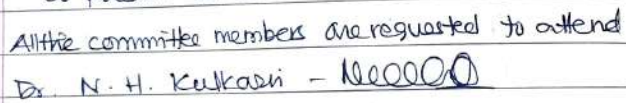 All the committee members are requested to attend
Dr. N. H. Kulkarni -